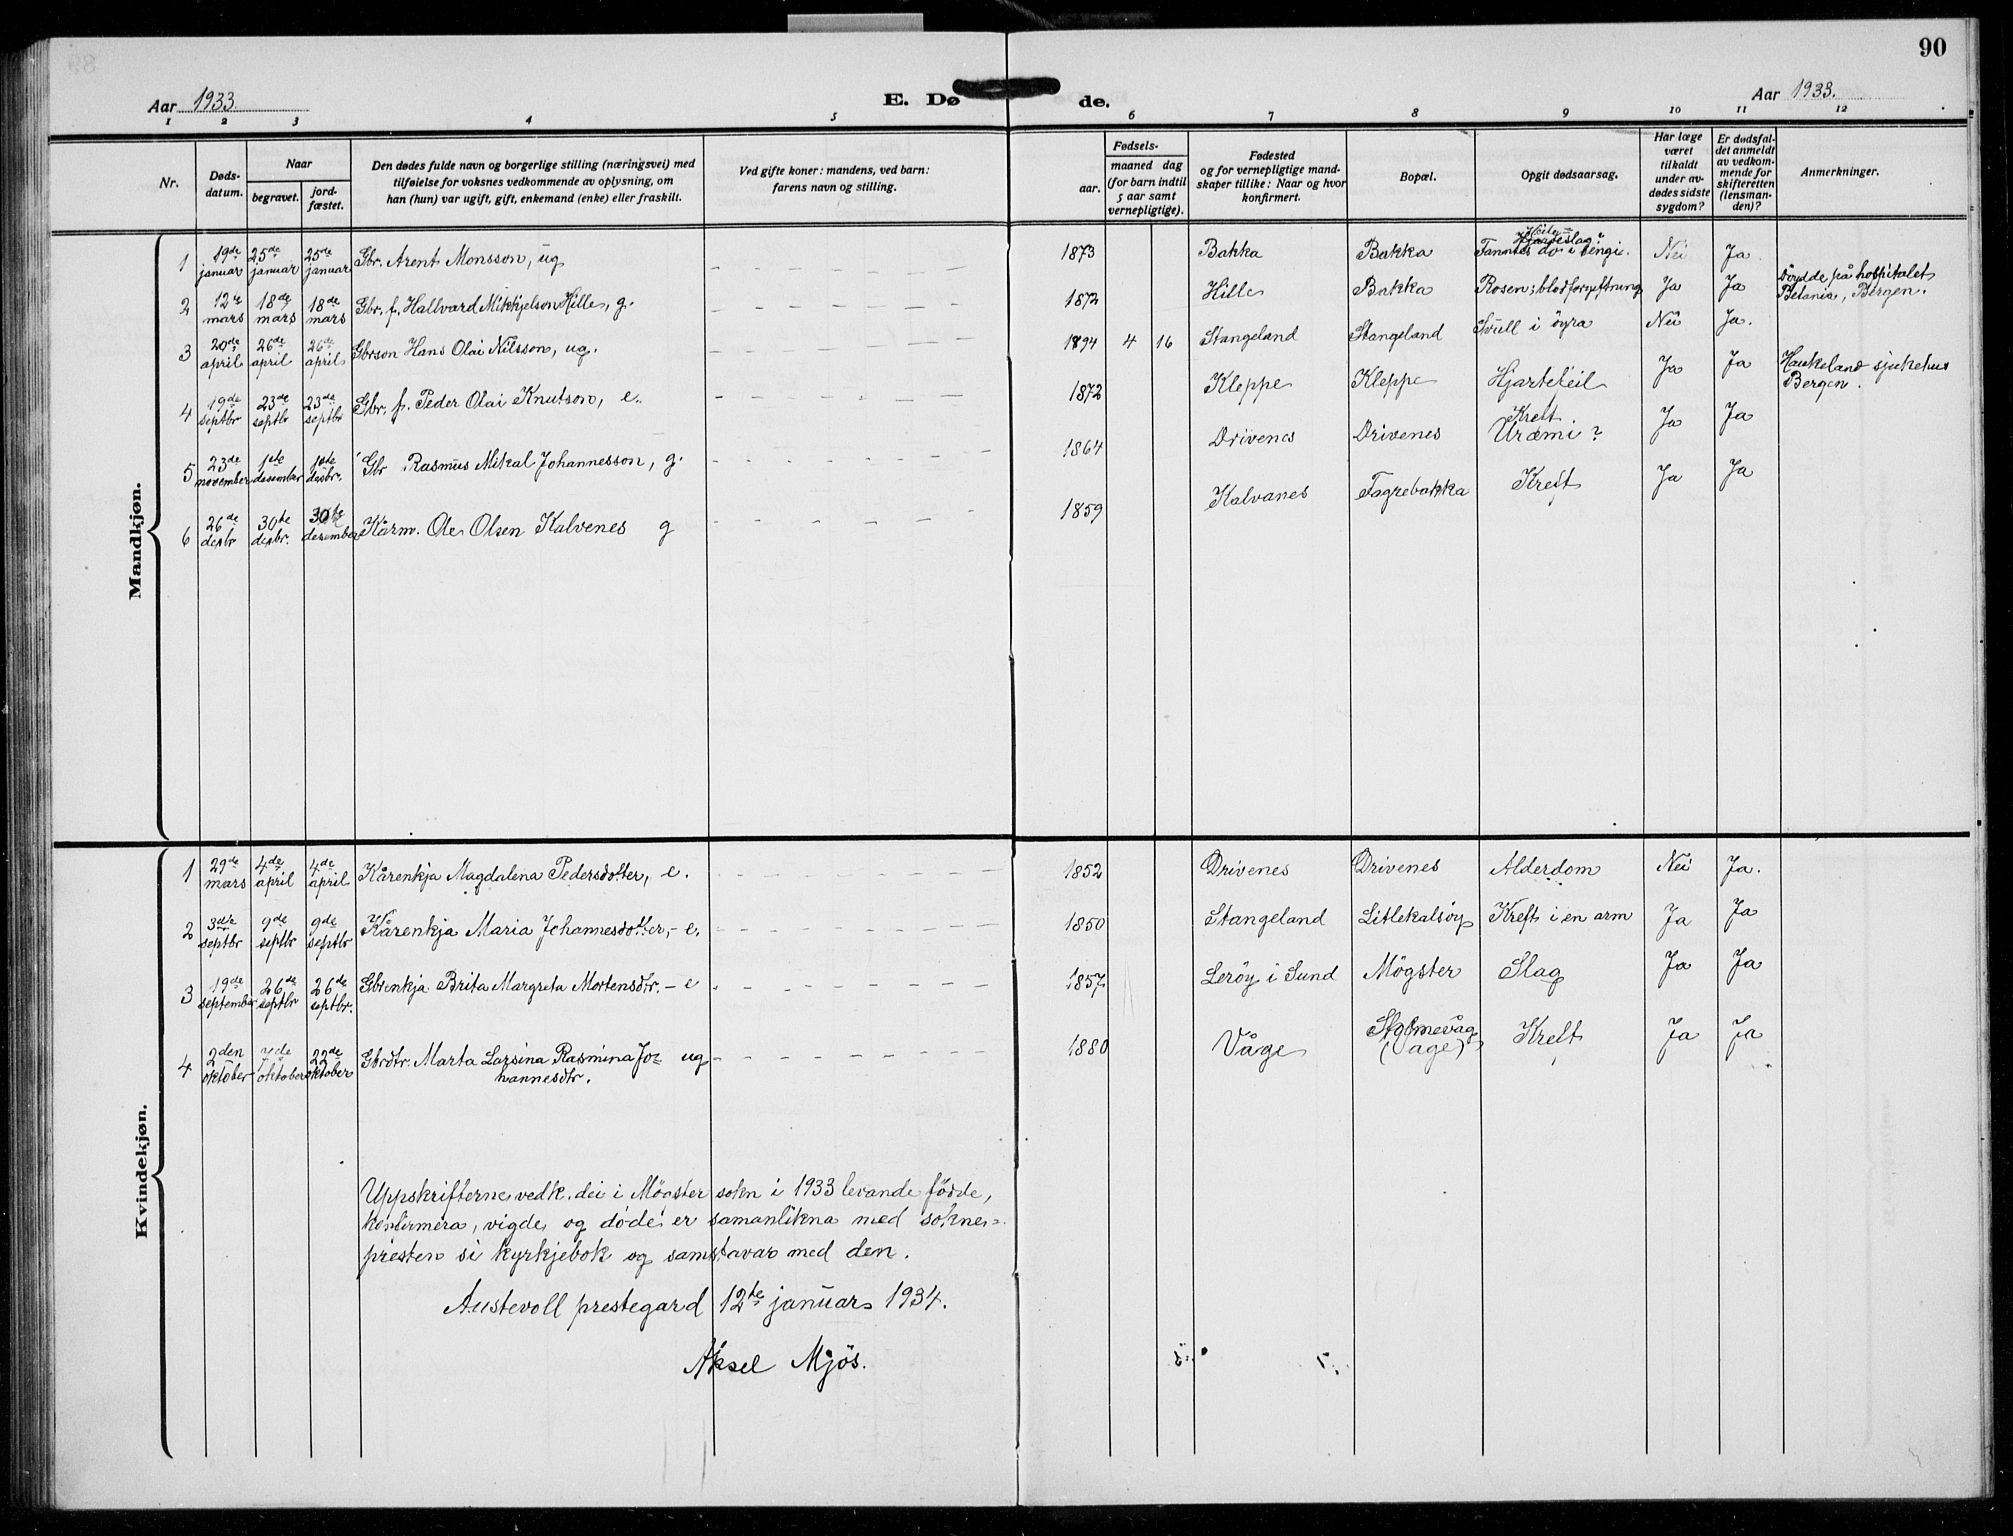 90
Aar 1933
E. Dø
de.
Aar 1933.
1 2 3 4 5 6 7 8 9 10 11 12
Nr.
Døds-
datum.
Naar
begravet.
jord-
fæstet.
Den dødes fulde navn og borgerlige stilling (næringsvei) med
tilføielse for voksnes vedkommende av oplysning, om
han (hun) var ugift, gift, enkemand (enke) eller fraskilt.
Ved gifte koner: mandens, ved barn:
farens navn og stilling.
Fødsels-
aar.
maaned dag
(for barn indtil
5 aar samt
vernepligtige).
Fødested
og for vernepligtige mand-
skaper tillike: Naar og hvor
konfirmert.
Bopæl.
Opgit dødsaarsag.
Har læge
været
tilkaldt
under av-
dødes sidste
sygdom?
Er dødsfal-
det anmeldt
av vedkom-
mende for
skifteretten
(lensman-
den)?
Anmerkninger.
Mandkjøn.
1 19de januar 25de januar 25de januar Gbr. Arent Monsson, ug 1873 Bakka Bakka Fanntes do i sengi. Nei Ja
2 12te mars 18de mars 18de mars Gbr. f. Hallvard Mikkjelson Hille, g. 1872 Hille Bakka Rosen; blodforgiftning Ja Ja Døydde på hospitalet
Betania, Bergen.
3 20de april 26de april 26de april Gbrson Hans Olai Nilsson, ug. 1894 4 16 Stangeland Stangeland Svull i öyra Nei Ja.
4 19de septbr 23de septbr 23de septbr Gbr. f. Peder Olai Knutson, e. 1872 Kleppe Kleppe Hjartefeil Ja Ja Haukeland sjukehus
Bergen.
5 23de november 1ste desember 1ste desbr. Gbr Rasmus Mikal Johannesson, g. 1864 Drivenes Drivenes Kreft
Uræmi? Ja Ja
6 26de desbr 30te desbr. 30te desember Kårm. Ole Olsen Kalvenes g 1859 Kalvanes Fagrebakka Kreft Ja Ja
Kvindekjøn.
1 29de mars 4de april 4de april Kårenkja Magdalena Pedersdotter, e. 1852 Drivenes Drivenes Alderdom Nei Ja.
2 3dje septbr 9de septbr 9de septbr Kårenkja Maria Johannesdotter, - e. 1850 Stangeland Litlekalsöy Kreft i en arm Ja Ja
3 19de september 26de septbr 26de septbr. Gbrenkja Brita Margreta Mortensdtr. - e 1857 Leröy i Sund Mögster Slag Ja Ja
4 2den oktober 7de oktober 22de oktober Gbrdtr. Marta Larsina Rasmina Jo= ug
hannesdtr. 1880 Våge Stormevåg
(Våge) Kreft Ja Ja
Uppskrifterne vedk. dei i Mögster sokn i 1933 levande födde,
konfirmera, vigde og døde er samanlikna med sokne=
presten si kyrkjebok og samstavar med den.
Austevoll prestegard 12te januar 1934.
Aksel Mjös.